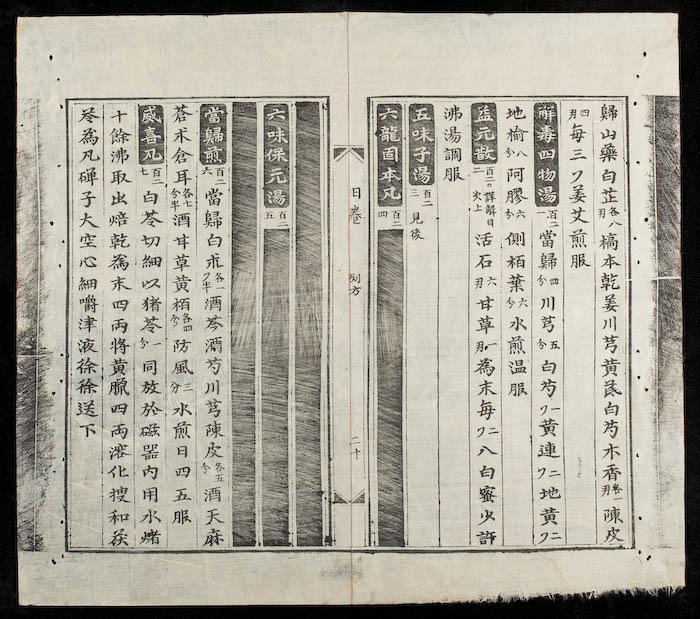 歸山藥白芷各八刄槁本乾姜川芎黃芪白芍木香各一刄陳皮
四刄每三フ姜艾煎服
解毒四物湯百二一當歸四分川芎五分白芍一フ黃連二フ地黃二フ
地榆八分阿膠六分側栢葉六分水煎溫服
益元散百二二○詳解日火上活石六刄甘草一刄為末每二八白蜜少許
沸湯調服
五味子湯百二三見後
六龍固本凡百二四
日卷 刻方 二十
六味保元湯百二五
當歸煎百二六當歸白朮各一フ半酒芩酒芍川芎陳皮各五分酒天麻
蒼朮倉耳各七分半酒甘草黃栢各四分防風三分水煎日四五服
感喜凡百二七白苓切細以猪苓一分同放於磁器內用水煑
十餘沸取出焙乾為末四兩將黃臘四兩溶化搜和茯
苓為凡磾子大空心細嚼津液徐徐送下